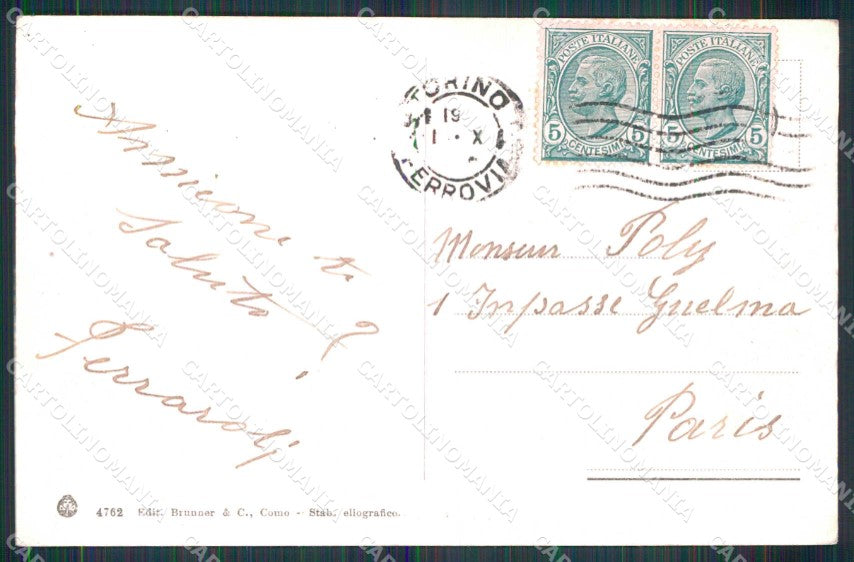 TORINO
19
1 · X
FERROVIA
POSTE ITALIANE
5 5
CENTESIMI
POSTE ITALIANE
5 5
CENTESIMI
Saluti
Ferraroli
Monsieur Poly
1 Inpasse Guelma
Paris
4762 Edit. Brunner & C., Como - Stab. eliografico.
CARTOLINOMANIA